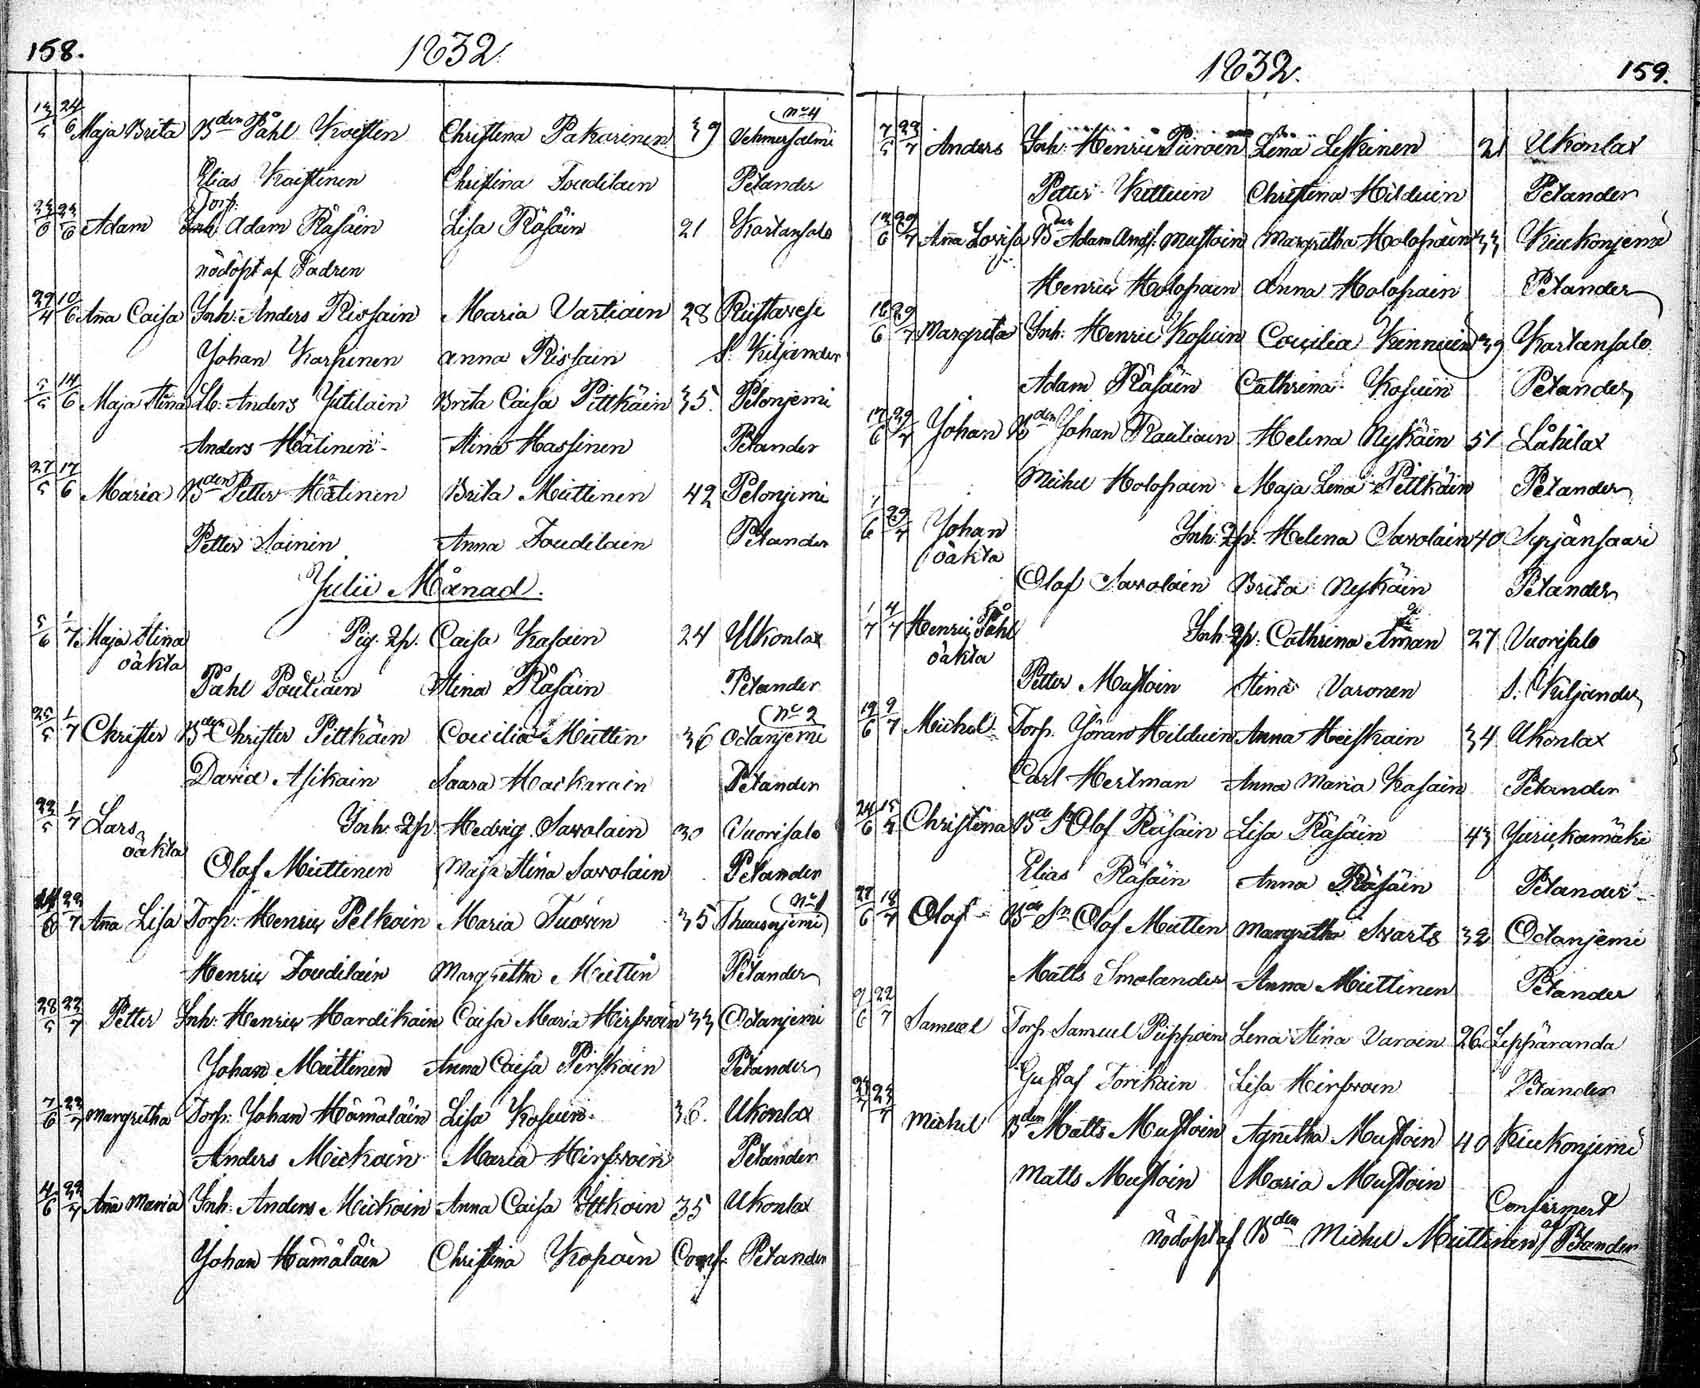 158.
1832.
13/5 24/6 Maja Brita Bden Påhl Koisten Christina Pakarinen 39 No 4 Vehmersalmi
Elias Koistinen Christina Toudilain Petander
6 24/6 Adam Torp: Adam Räsäin Lisa Räsäin 21 Kartansalo
nödöpt af Fadren
29/4 10/6 Aña Caisa Inh: Anders Rissain Maria Vartiain 28 Riistavesi
Johan Karpinen Anna Rissain S. Kiljander
5/5 14/6 Maja Stina Lb: Anders Jutilain Brita Caisa Pittkäin 35. Pelonjemi
Anders Hälinen Stina Hassinen Petander
27/5 17/6 Maria Bden Petter Hälinen Brita Miettinen 42 Pelonjemi
Petter Sainin Anna Toudilain Petander
Julii Månad.
5/6 1/7 Maja Stina oäkta Pig. 2p. Caisa Kasain 24 Ukonlax
Påhl Poutiain Stina Räsäin Petander
25/5 1/7 Christer Bden Christer Pittkäin Coecilia Miettin 36 No 2 Oetanjemi
David Asikain Saara Mackarain Petander
22/5 1/7 Lars oäkta Inh: 2p Hedvig Savolain 30 Vuorisalo
Olaf Miettinen Maja Stina Savolain Petander
22/7 Aña Lisa Torp: Henric Pelkoin Maria Tuovin 35 No 1
Henric Toudilain Margretha Miettin Petander
28/5 22/7 Petter Inh: Henric Hardikain Caisa Maria Hirsvoin 33 Oetanjemi
Johan Miettinen Anna Caisa Pirskain Petander
7/6 22/7 Margretha Torp: Johan Hämäläin Lisa Kosuin 36. Ukonlax
Anders Mickain Maria Hirsvoin Petander
4/6 22/7 Aña Maria Inh: Anders Mickoin Anna Caisa Ittkoin 35 Ukonlax
Johan Hämäläin Christina Kopoin Conf: Petander
1832.
159.
7/5 Anders Inh: Henric Piiroin Lena Leskinen 21 Ukonlax
Petter Kettuin Christina Hilduin Petander
13/6 29/7 Aña Lovisa Bden Adam And: Mustoin Margretha Holopain 33 Kiukonjemi
Henric Holopain Anna Holopain Petander
16/6 29/7 Margreta Inh: Henric Kosuin Coecilia Kinnuin 39 Kartansalo
Adam Räsäin Cathrina Kosuin Petander
17/6 29/7 Johan Bden Johan Rautiain Helena Nykäin 51 Låhilax
Michel Holopain Maja Lena Pittkäin Petander
1/6 29/7 Johan oäkta Inh: 2p: Helena Savolain 40 Syrjänsaari
Olof Savolain Brita Nykäin Petander
1/7 4/7 Henric Påhl oäkta Inh: 2p: Cathrina Åman 27 Vuorisalo
Petter Mustoin Stina Varonen S. Kiljander
19/6 2/7 Michel Torp. Göran Hilduin Anna Heiskain 34 Ukonlax
Carl Hertman Anna Maria Kasain Petander
24/6 15/7 Christina Bde Sn Olof Räisäin Lisa Räsäin 43 Jurickamäki
Elias Räsäin Anna Räsäin Petander
27/6 18/7 Olof Bde Sn Olof Mietten Margretha Svarts 32 Oetanjemi
Matts Smolander Anna Miettinen Petander
9/6 22/7 Samuel Torp Samuel Piippoin Lena Stina Varoin 26 Leppäranda
Gustaf Torikain Lisa Hirsvoin Petander
Michel Bden Matts Mustoin Agnetha Mustoin 40 Kiukonjemi
Matts Mustoin Maria Mustoin
Confirmert
nödöpt af Bden Michel Miettinen af Petander